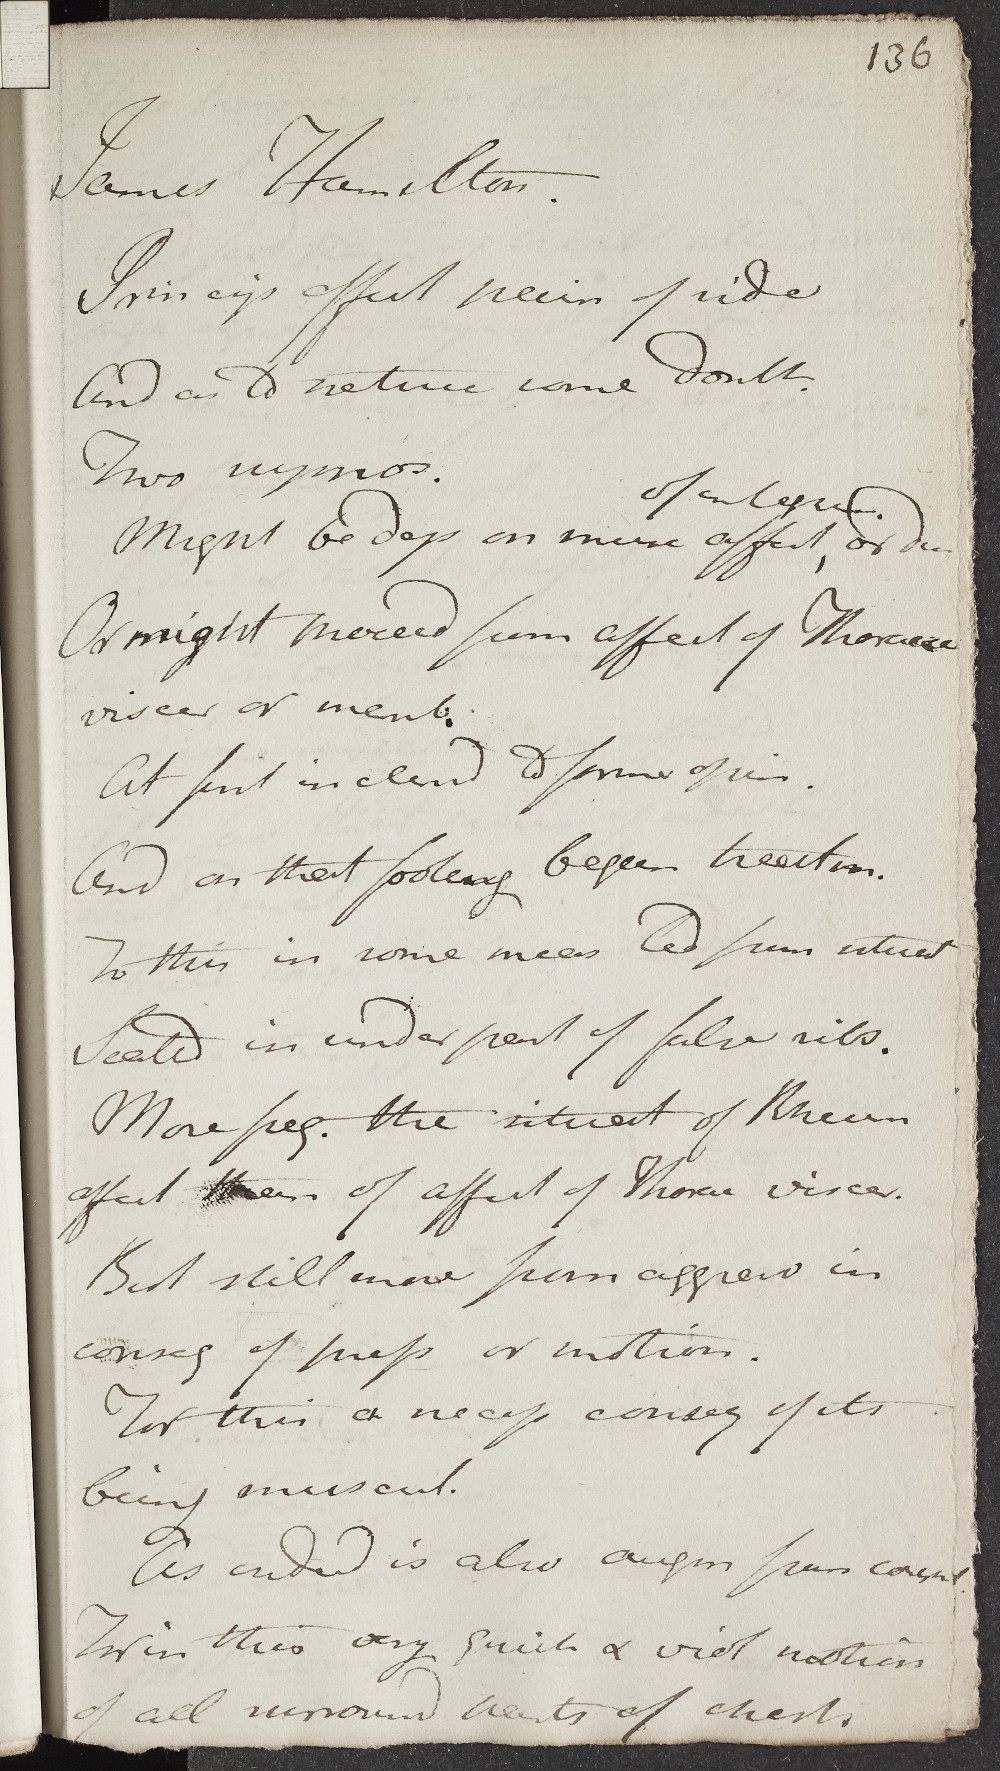 136
James Hamilton.
Princip affect pain of side
And as to nature some doubt.
Two suppos.
of integum.
Might be dep on musc affect, or
Or might proceed from affect of Thoracic
viscer or memb.
At first inclend to former opin.
And on that footing began treatm.
To this in some meas led from situat
Seated in under part of false ribs.
More freq. the situat of Rheum
affect than of affect of Thorac viscer.
But still more from aggrav in
conseq of press or motion.
For this a necess conseq of its
being muscul.
As indeed is also augm from cough.
For in this very quick & viol motion
of all surround parts of chest